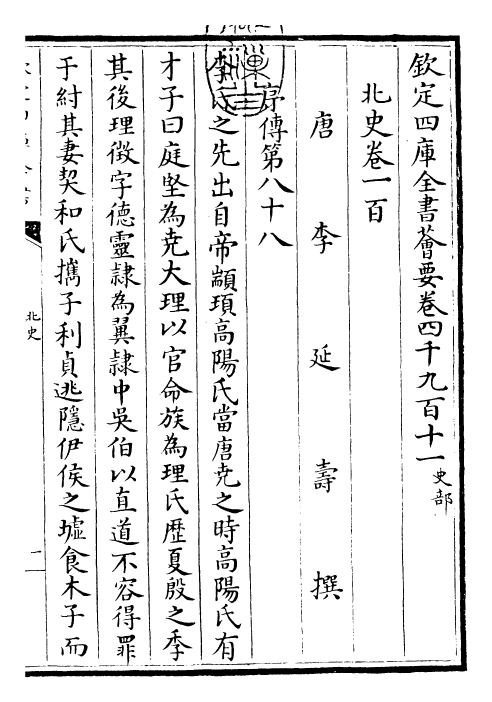 欽定四庫全書薈要卷四千九百十一史部
北史卷一百
唐李延壽撰
序傳第八十八
李氏之先出自帝顓頊高陽氏當唐堯之時高陽氏有
才子曰庭堅為堯大理以官命族為理氏歴夏殷之季
其後理徴字德靈隷為翼隷中吳伯以直道不容得罪
于紂其妻契和氏攜子利貞逃隱伊侯之墟食木子而
北史